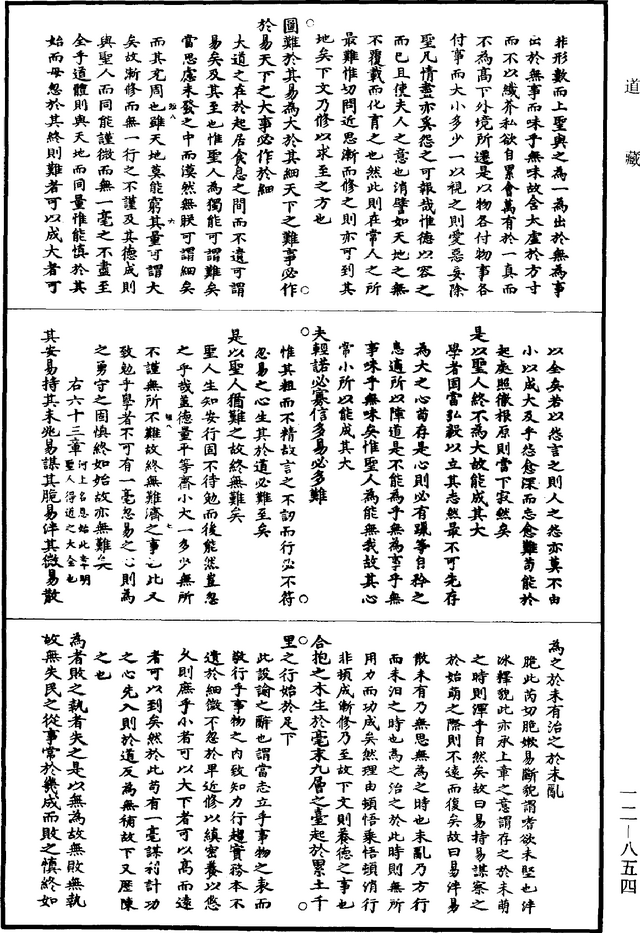 道藏
非形數而上聖與之為一為出於無為事
出於無事而味乎無味故含太虛於方寸
而不以纖芥私欲自累會萬有於一真而
不為高下外境所遷是以物各付物事各
付事而大小多少一以視之則愛惡妄除
聖凡情盡亦奚怨之可報哉惟德以容之
而已且使夫人之意也消譬如天地之無
不覆載而化育之也然此則在常人之所
最難惟切問近思漸而修之則亦可到其
地矣下文乃修以求至之方也
圖難於其易為大於其細天下之難事必作
於易天下之大事必作於細
大道之在於起居食息之間而不遺可謂
易矣及其至也惟聖人為獨能可謂難矣
當思慮未發之中而漠然無朕可謂細矣
而其充周也雖天地莫能窮其量可謂大
矣故漸修而無一行之不謹及其德成則
與聖人而同能謹微而無一毫之不盡至
全乎道體則與天地而同量惟能慎於其
始而毋忽於其終則難者可以成大者可
以全矣若以怨言之則人之怨亦莫不由
小以成大及乎怨愈深而忘愈難苟能於
起處照徹根原則當下寂然矣
是以聖人終不為大故能成其大
學者固當弘毅以立其志然最不可先存
為大之心苟存是心則必有躐等自矜之
患適所以障道是不能為乎無為事乎無
事味乎無味矣惟聖人為能無我故其心
常小所以能成其大
夫輕諾必寡信多易必多難
惟其粗而不精故言之不訒而行必不符
忽易之心生其於道必難至矣
是以聖人猶難之故終無難矣
聖人生知安行固不待勉而後能然豈忽
之乎哉蓋德量平等齊小大一多少無所
不謹無所不難故終無難濟之事也此又
致勉乎學者不可有一毫忽易之心則為
之勇守之固慎終如始故亦無難矣
右六十三章河上名恩始此章明聖人得道之大全也
其安易持其未兆易謀其脆易泮其微易散
為之於未有治之於未亂
脆此芮切脃嫰易斷貌謂者欲未堅也泮
冰釋貌此亦承上章之意謂存之於未萌
之時則渾乎自然矣故曰易持易謀察之
於始萌之際則不遠而復矣故曰易泮易
散未有乃無思無為之時也未亂乃方行
而未汨之時也為之治之於此時則無所
用力而功成矣然理由頓悟乘悟頓消行
非頓成漸修乃至故下文則養德之事也
合抱之木生於毫末九層之臺起於累土千
里之行始於足下
此設諭之辭也謂當志立乎事物之表而
敬行乎事物之內致知力行趨實務本不
遺於細微不忽於卑近修以縝密養以悠
久則庶乎小者可以大下者可以高而遠
者可以到矣然於此苟有一毫謀利計功
之心先入則於道反為無術故下又歷陳
之也
為者敗之執者失之是以無為故無敗無執
故無失民之從事常於幾成而敗之慎終如
一二—八五四